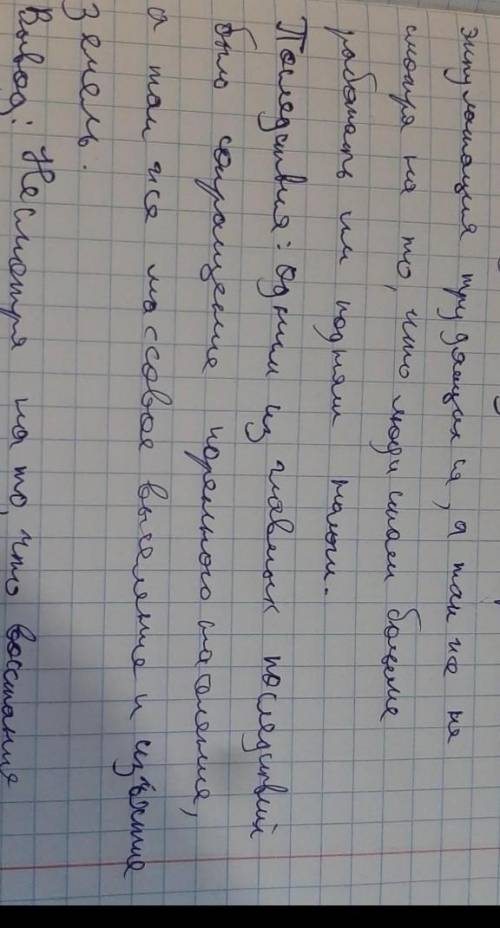 эксплуатация трудящихся, а так же не
смотря на то, что люди стали больше
работать им подняли налоги.
Последствия: одним из главных последствий
было сокращение коренного населения,
а так же массовое выселение и изъятие
земель.
Вывод: Несмотря на то, что восстания